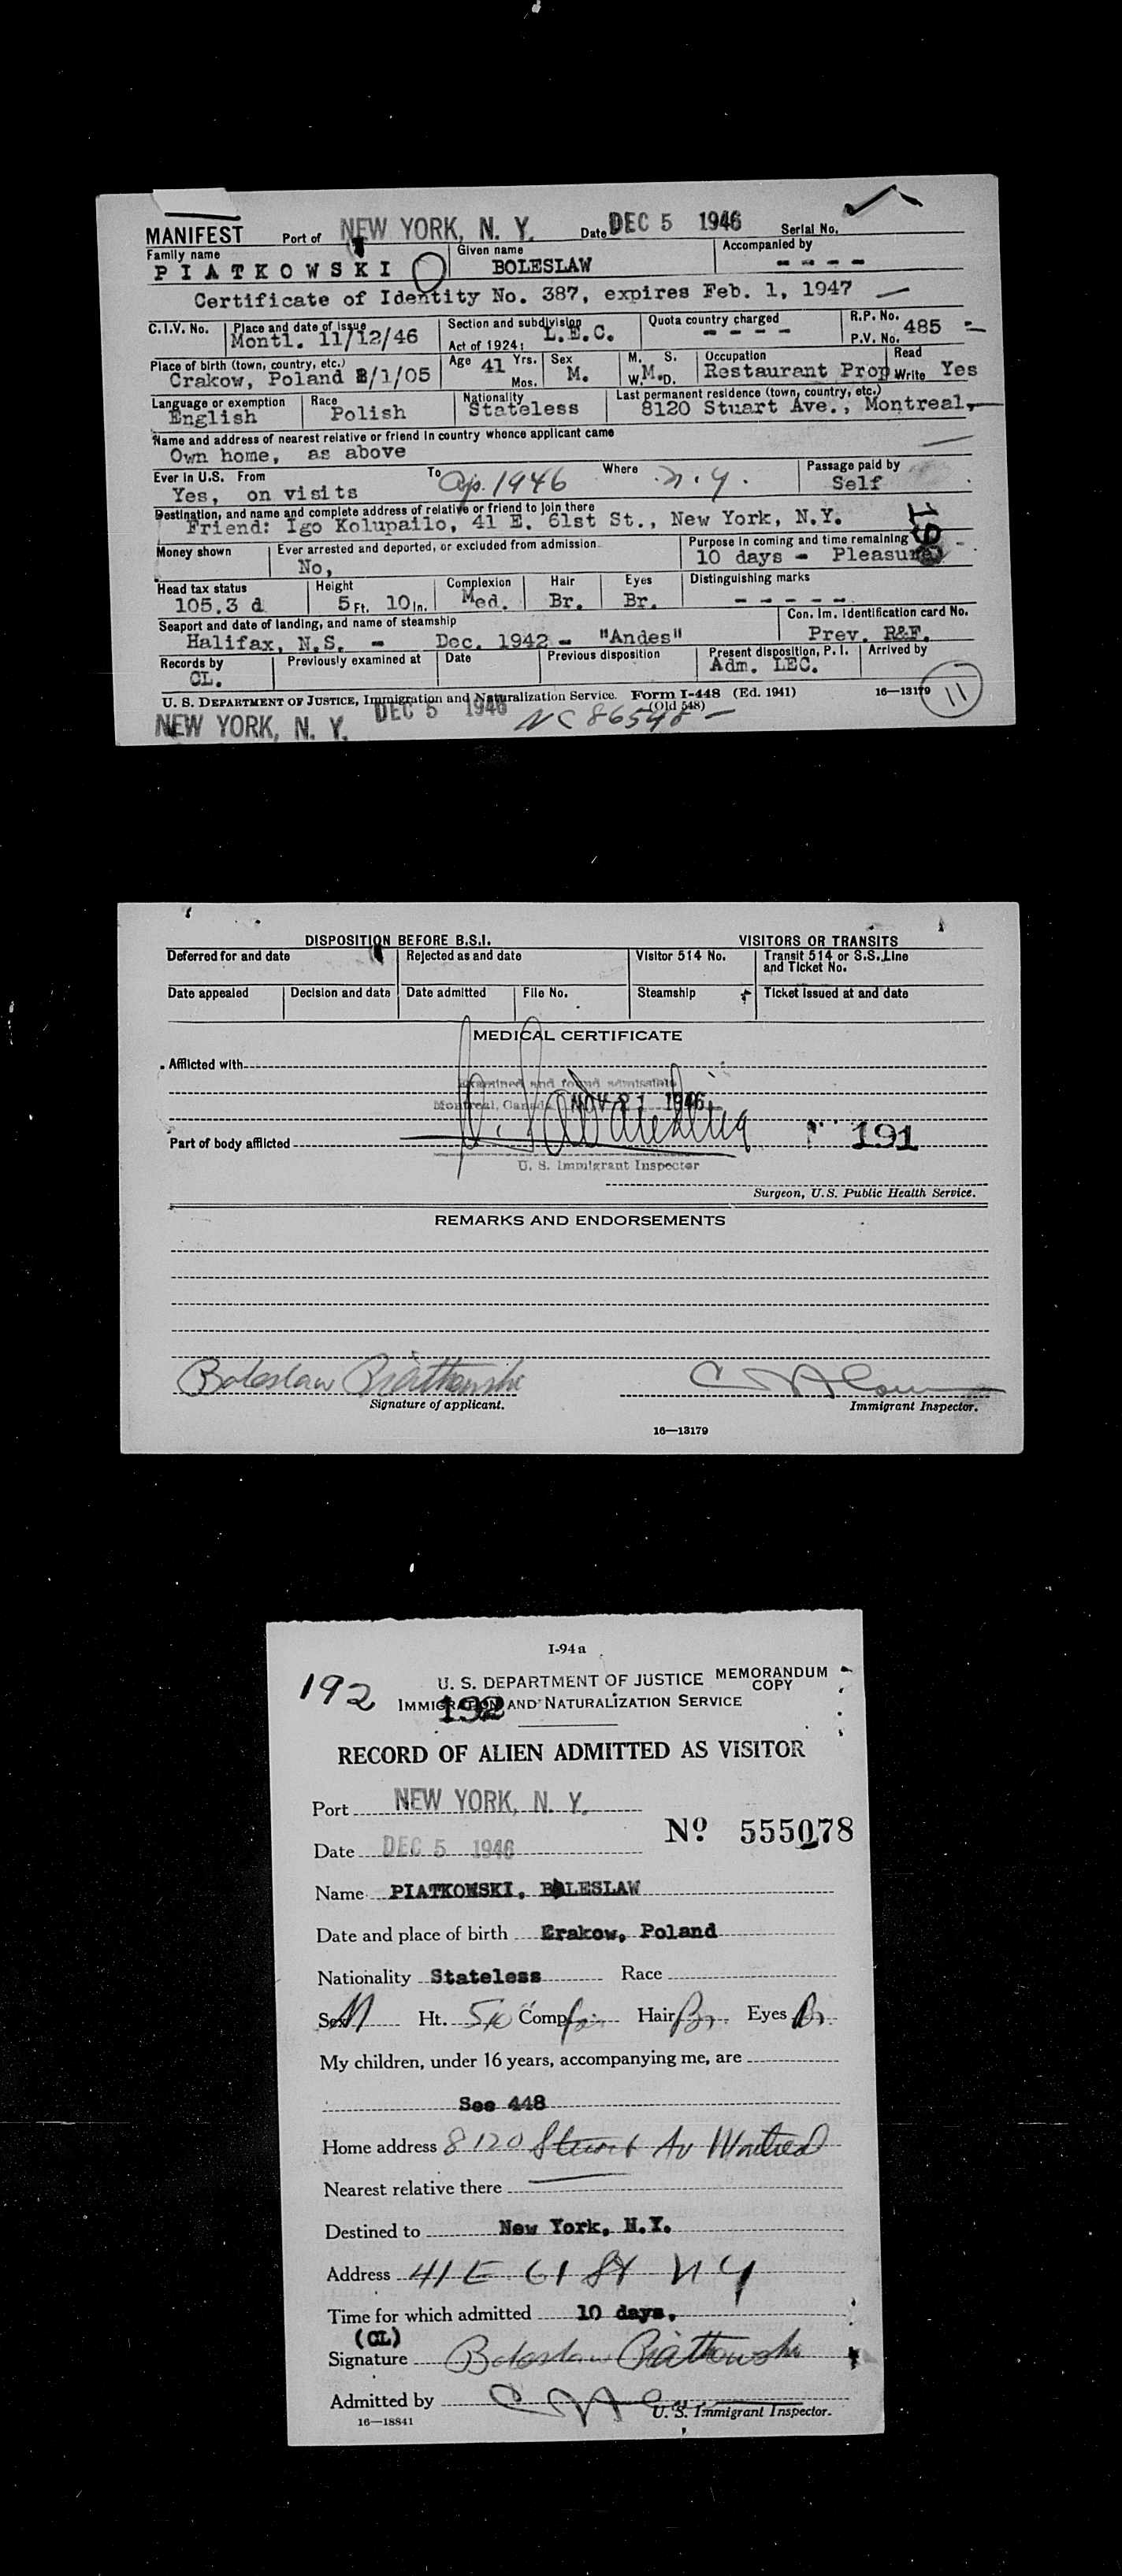 MANIFEST Port of NEW YORK, N. Y. Date DEC 5 1946 Serial No.
Family name Given name Accompanied by
PIATKOWSKI BOLESLAW - - - -
Certificate of Identity No. 387, expires Feb. 1, 1947
C.I.V. No. Place and date of issue Section and subdivision Quota country charged R.P. No.
Montl. 11/12/46 Act of 1924: L.E.C. - - - - P.V. No. 485
Place of birth (town, country, etc.) Age 41 Yrs. Mos. Sex M. S. W. D. Occupation Read
Crakow, Poland /1/05 M. M. Restaurant Prop Write Yes
Language or exemption Race Nationality Last permanent residence (town, country, etc.)
English Polish Stateless 8120 Stuart Ave., Montreal,
Name and address of nearest relative or friend in country whence applicant came
Own home, as above
Ever in U.S. From To Where Passage paid by
Yes, on visits Ap. 1946 N.Y. Self
Destination, and name and complete address of relative or friend to join there
Friend: Igo Kolupailo, 41 E. 61st St., New York, N.Y.
Money shown Ever arrested and deported, or excluded from admission Purpose in coming and time remaining
No, 10 days - Pleasure
Head tax status Height Complexion Hair Eyes Distinguishing marks
105.3 d 5 Ft. 10 In. Med. Br. Br. - - - - -
Seaport and date of landing, and name of steamship Con. Im. Identification card No.
Halifax, N.S. - Dec. 1942 - "Andes" Prev. R&F.
Records by Previously examined at Date Previous disposition Present disposition, P. I. Arrived by
CL. Adm. LEC.
U. S. DEPARTMENT OF JUSTICE, Immigration and Naturalization Service. Form I-448 (Ed. 1941) 16-13179 11
(Old 548)
NEW YORK, N. Y. DEC 5 1946
DISPOSITION BEFORE B.S.I. VISITORS OR TRANSITS
Deferred for and date Rejected as and date Visitor 514 No. Transit 514 or S.S. Line and Ticket No.
Date appealed Decision and date Date admitted File No. Steamship Ticket issued at and date
MEDICAL CERTIFICATE
Afflicted with
Examined and found admissible
Montreal, Canada NOV 21 1946
Part of body afflicted 191
U. S. Immigrant Inspector
Surgeon, U.S. Public Health Service.
REMARKS AND ENDORSEMENTS
Boleslaw Piatkowski
Signature of applicant. Immigrant Inspector.
16—13179
I-94a
192 U. S. DEPARTMENT OF JUSTICE MEMORANDUM COPY
IMMIGRATION AND NATURALIZATION SERVICE
192
RECORD OF ALIEN ADMITTED AS VISITOR
Port NEW YORK, N. Y.
No 555078
Date DEC 5 1946
Name PIATKOWSKI, BOLESLAW
Date and place of birth Krakow, Poland
Nationality Stateless Race
Sex M Ht. 5/10 Comp. fair Hair Br. Eyes Br.
My children, under 16 years, accompanying me, are
See 448
Home address 8120 Stuart Av Montreal
Nearest relative there
Destined to New York, N.Y.
Address 41 E 61 St N Y
Time for which admitted 10 days.
(CL)
Signature Boleslaw Piatkowski
Admitted by
U. S. Immigrant Inspector.
16—18841